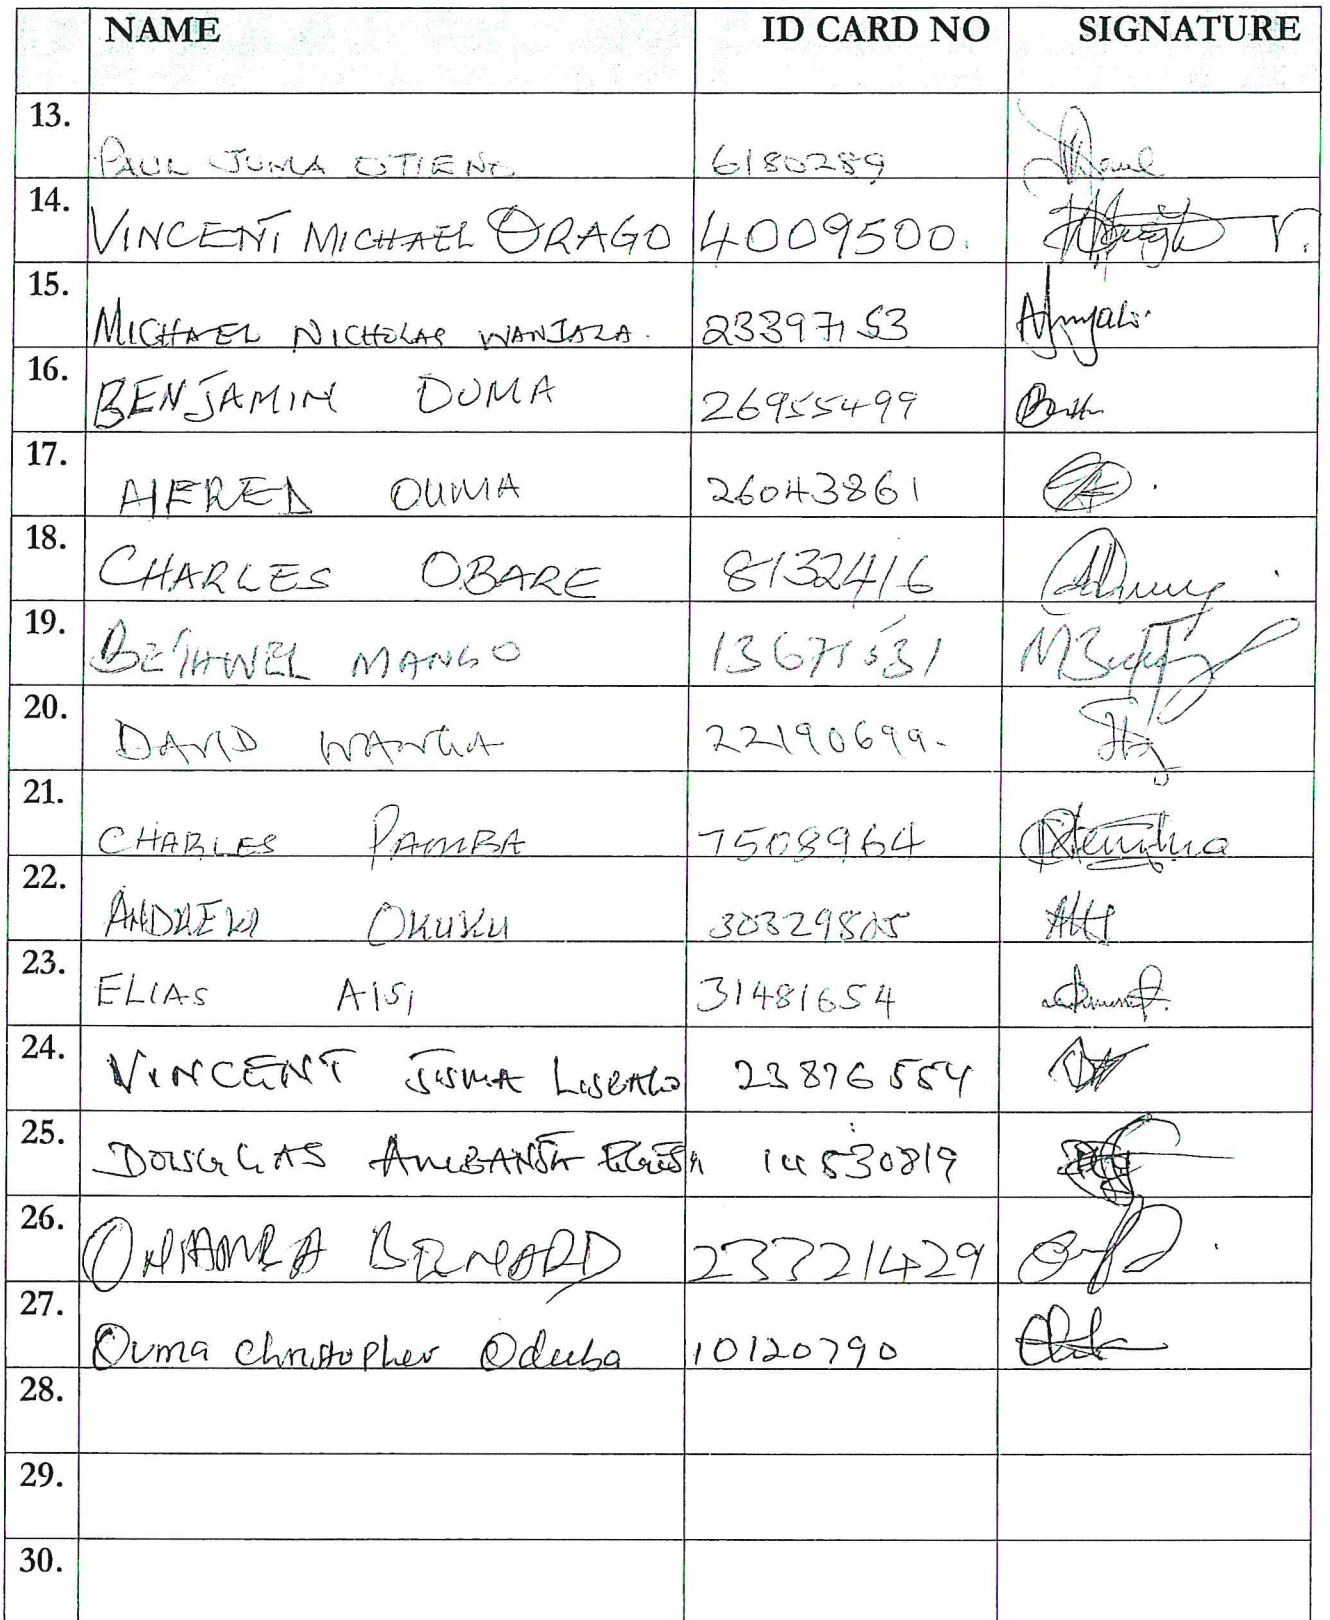 NAME ID CARD NO SIGNATURE
13. PAUL JUMA OTIENO 6180289
14. VINCENT MICHAEL ORAGO 4009500.
15. MICHAEL NICHOLAS WANJALA. 23397153
16. BENJAMIN OUMA 26955499
17. AlFRED OUMA 26043861
18. CHARLES OBARE 8132416
19. BETHWEL MANGO 13671531
20. DAVID WANGA 22190699.
21. CHARLES PAMBA 7508964
22. ANDREW OKUKU
23. ELIAS AISI 31481654
24. VINCENT JUMA 23876554
25. DOUGLAS 14530819
26. BERNARD 23321429
27. Ouma Christopher Oduba 10120790
28.
29.
30.